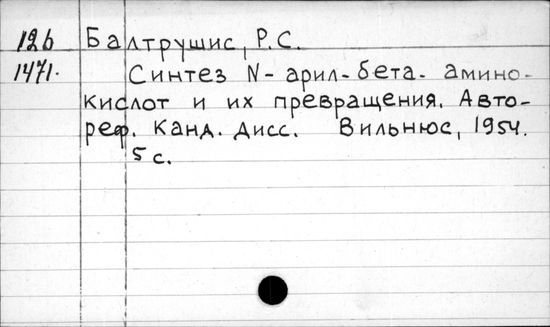 126 Балтрушис, Р.С.
1471. Синтез N-арил-бета-амино-
кислот и их превращения. Авто-
реф. канд. дисс. Вильнюс, 1954.
5 с.